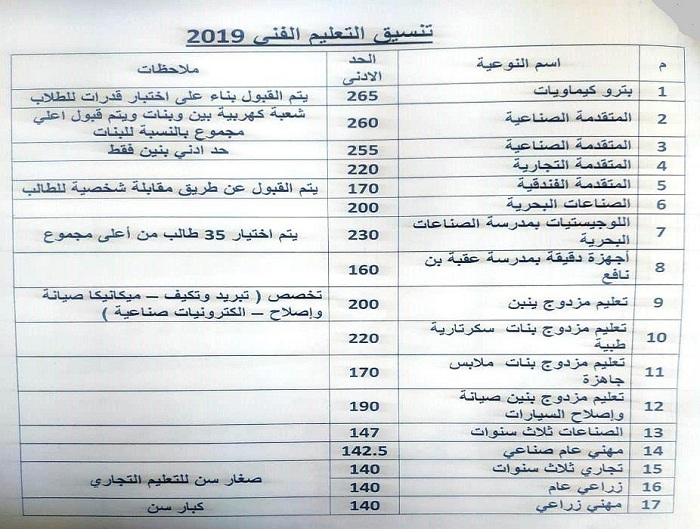 تنسيق التعليم الفني 2019
م اسم النوعية الحد الادنى ملاحظات
1 بترو كيماويات 265 يتم القبول بناء على اختبار قدرات للطلاب
2 المتقدمة الصناعية 260 شعبة كهربية بين وبنات ويتم قبول اعلي مجموع بالنسبة للبنات
3 المتقدمة الصناعية 255 حد ادني بنين فقط
4 المتقدمة التجارية 220
5 المتقدمة الفندقية 170 يتم القبول عن طريق مقابلة شخصية للطالب
6 الصناعات البحرية 200
7 اللوجيستيات بمدرسة الصناعات البحرية 230 يتم اختيار 35 طالب من أعلى مجموع
8 أجهزة دقيقة بمدرسة عقبة بن نافع 160
9 تعليم مزدوج ينبن 200 تخصص ( تبريد وتكيف – ميكانيكا صيانة وإصلاح – الكترونيات صناعية )
10 تعليم مزدوج بنات سكرتارية طبية 220
11 تعليم مزدوج بنات ملابس جاهزة 170
12 تعليم مزدوج بنين صيانة وإصلاح السيارات 190
13 الصناعات ثلاث سنوات 147
14 مهني عام صناعي 142.5
15 تجاري ثلاث سنوات 140 صغار سن للتعليم التجاري
16 زراعي عام 140
17 مهني زراعي 140 كبار سن